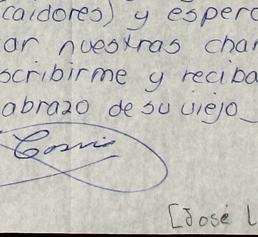 caidores) y espero
ar nuestras char
scribirme y reciba
abrazo de su viejo
[José L